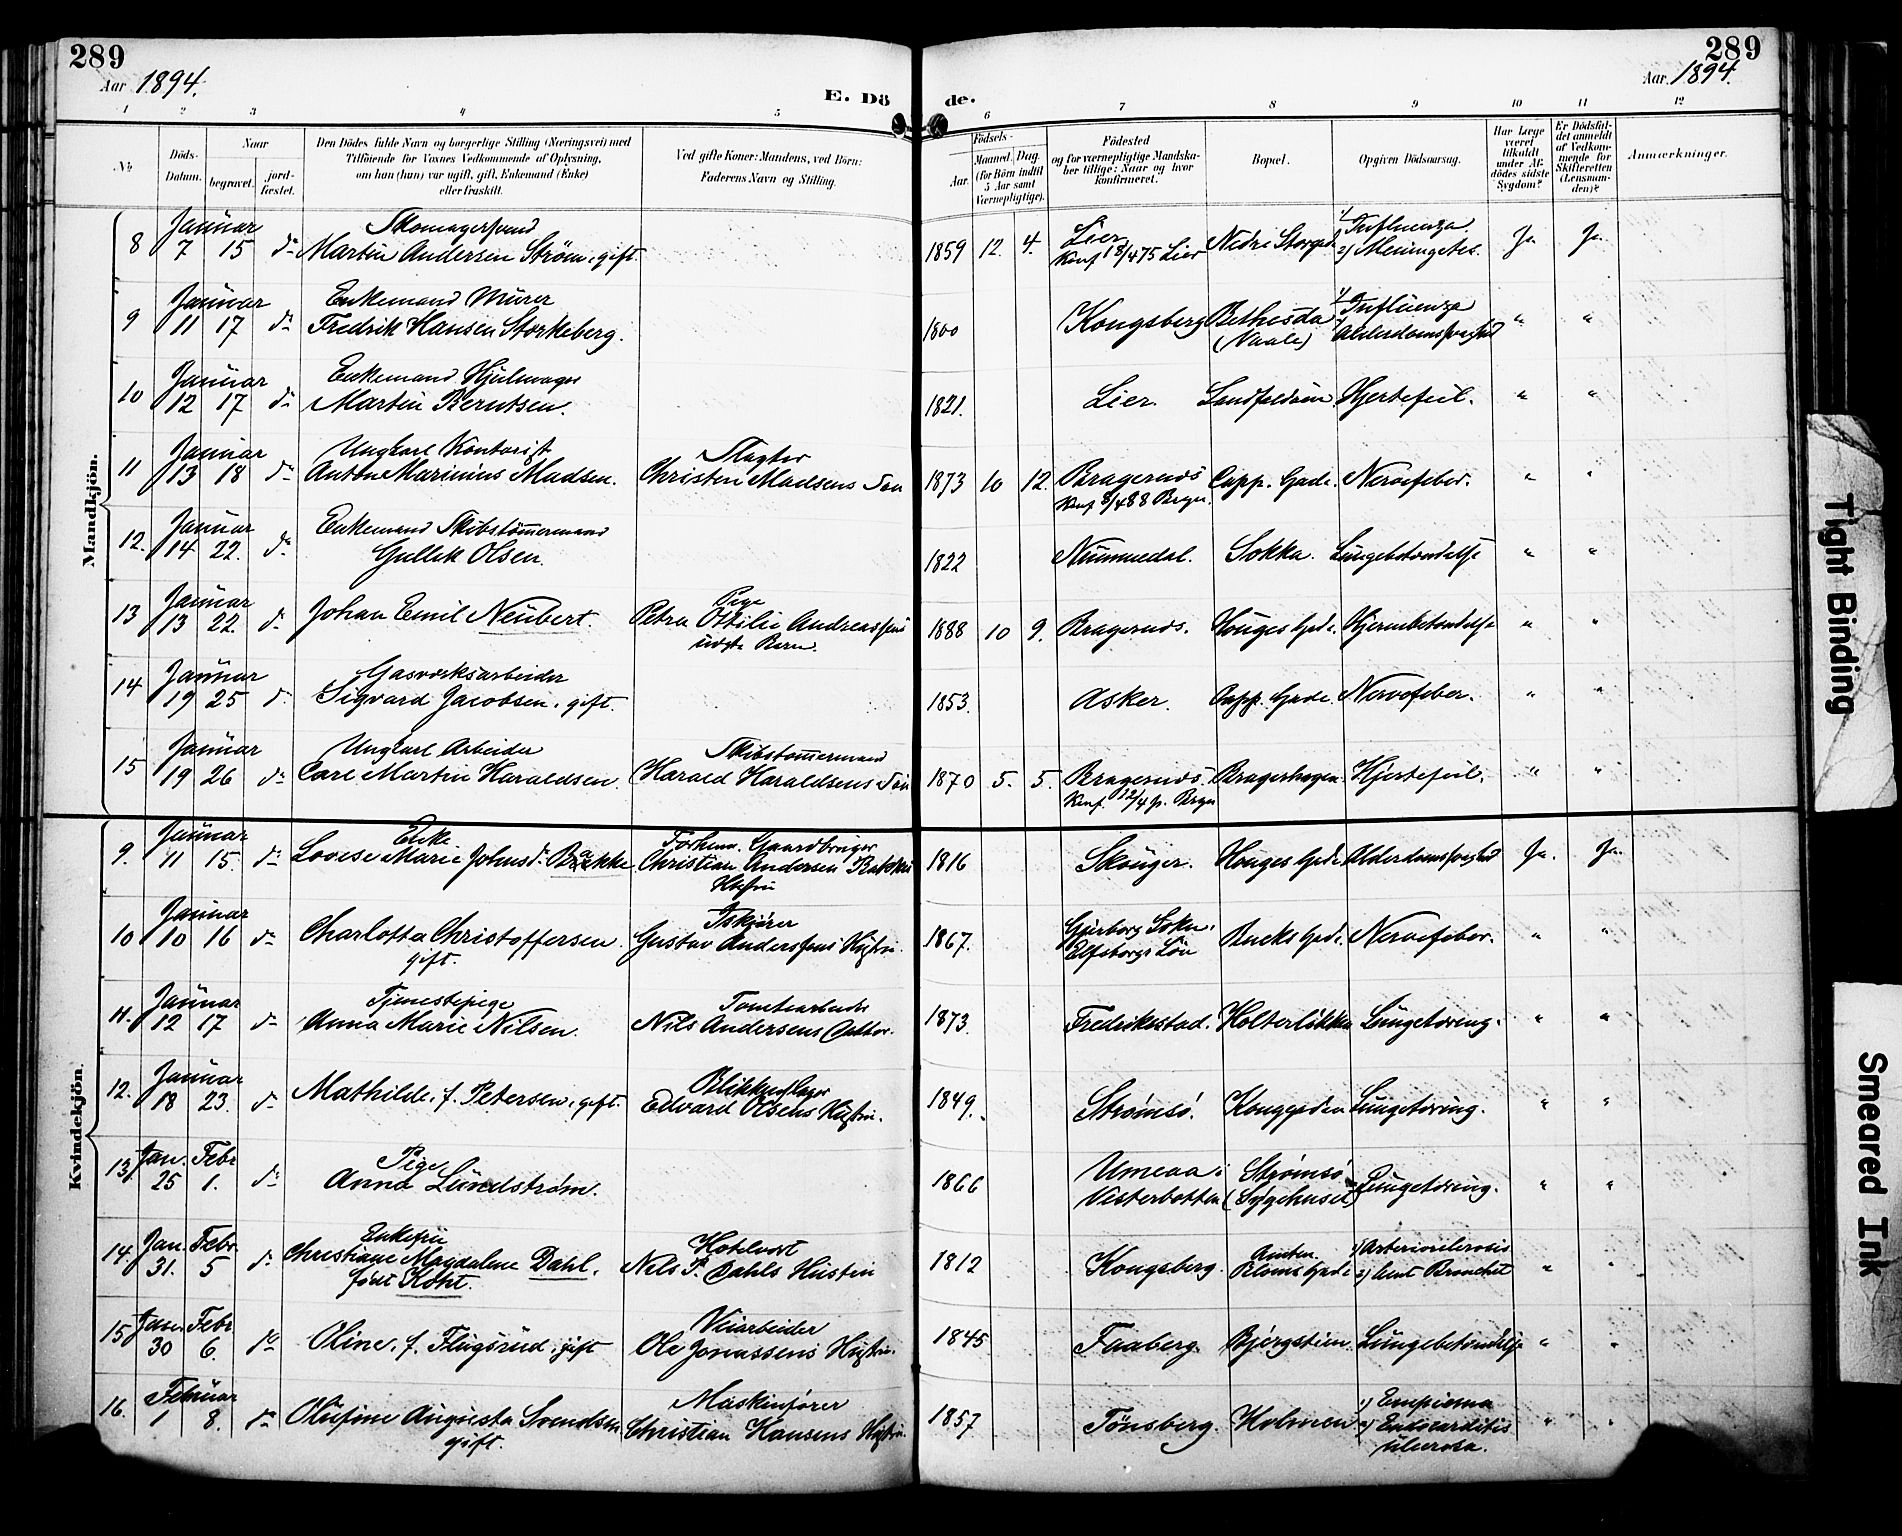 289
Aar 1894.
E. Dö
de.
289
Aar 1894.
1 2 3 4 5 6 7 8 9 10 11 12
No.
Döds-Datum.
Naar
begravet.
jordfæstet.
Den Dödes fulde Navn og borgerlige Stilling (Næringsvei) med
Tilföiende for Voxnes Vedkommende af Oplysning,
om han (hun) var ugift, gift, Enkemand (Enke)
eller fraskilt.
Ved gifte Koner: Mandens, ved Börn:
Faderens Navn og Stilling.
Födsels-
Aar.
Maaned. Dag.
(for Börn indtil
5 Aar samt
Værnepligtige).
Födested
og for værnepligtige Mandskaber
tillige: Naar og hvor
konfirmeret.
Bopæl.
Opgiven Dödsaarsag.
Har Læge
været
tilkaldt
under Afdödes
sidste
Sygdom?
Er Dödsfaldet
anmeldt
af Vedkommende
for
Skifteretten
(Lensmanden)?
Anmærkninger.
Mandkjön.
8 Januar 7 15 do Skomagersvend
Martin Andersen Strøm, gift 1859 12. 4. Lier
Konf 18/4 75 Lier Nedre Storgad 1) Influenza.
2) Meningetes. Ja Ja
9 Januar 11 17 do Enkemand Murer
Fredrik Hansen Storkeberg. 1800 Kongsberg Bethesda
(Vaale) 1) Influenza
Alderdomssvaghed " "
10 Januar 12 17 do Enkemand Hjulmager
Martin Berntsen. 1821. Lier. Landfaldøien Hjertefeil. " "
11 Januar 13 18 do Ungkarl Kontorist
Anton Marinius Madsen. Slagter
Christen Madsens Søn 1873 10 12. Bragernæs
Konf 8/4 88 Brgn. Capp. Gade. Nervefeber. " "
12. Januar 14 22. do Enkemand Skibstømmermand
Gullik Olsen. 1822 Nummedal. Sokka. Lungebetændelse " "
13 Januar 13 22. do Johan Emil Neubert. Pige
Petra Ottilie Andreassens
uægte Barn. 1888 10 9. Bragernæs. Houges Gade. Hjernebetændelse " "
14 Januar 19 25 do Gasværksarbeider
Sigvard Jacobsen, gift. 1853. Asker. Capp. Gade. Nervefeber. " "
15 Januar 19 26 do Ungkarl Arbeider
Carl Martin Haraldsen. Skibstømmermand
Harald Haraldsens Søn 1870 5. 5. Bragernæs
Konf. 12/4 Bragerhagen Hjertefeil. " "
Kvindekjön.
9. Januar 11 15. do Enke
Lovise Marie Johnsd. Brække Forhenv. Gaardbruger
Christian Andersen
Hustru 1816 Skouger. Houges Gade Alderdomssvaghed Ja. Ja.
10 Januar 10 16 do Charlotta Christoffersen.
gift. Iskjører
Gustav Anderssens Hustru. 1867. Sokn.
Elfsborgs Län Bucks Gade. Nervefeber. " "
11. Januar 12 17 do Tjenestepige
Anna Marie Nilsen. Tomtearbeider
Nils Andersens Datter. 1873. Fredrikstad. Holterløkken Lungetæring. " "
12. Januar 18 23. do Mathilde, f. Petersen, gift. Blikkenslager
Edvard Olsens Hustru. 1849. Strømsø. Konggaden Lungetæring. " "
13 Jan. 25 Febr 1. do Pige
Anna Lundström. 1866 Umeaa i
Vesterbotten Strømsø
(Sygehuset) Lungetæring. " "
14 Jan. 31. Febr. 5 do Enkefru
Christiane Magdalene Dahl.
født Koht. Hotelvært
Nils P. Dahls Hustru 1812 Kongsberg. Amtm.
Bloms Gade 1) Arteriosclerosis
2) Acut Bronchit " "
15 Jan. 30 Febr 6. do Oline, f. Flugsrud, gift Veiarbeider
Ole Jonassens Hustru. 1845 Faaberg. Bjergstien. Lungebetændelse " "
16. Februar 1 8. do Olufine Augusta Svendsen
gift. Maskinfører
Christian Hansens Hustru. 1857 Tønsberg. Holmen 1) Empiema
2) Endocarditis
ulcerosa. " "
Tight Binding
Smeared Ink